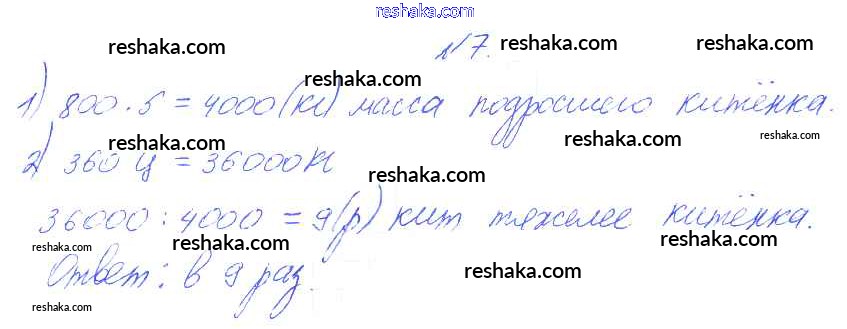 reshaka.com
№7.
reshaka.com reshaka.com reshaka.com
reshaka.com
1) 800 · 5 = 4000 (кг) масса подросшего китёнка.
reshaka.com reshaka.com reshaka.com
2) 360 ц = 36000 кг
reshaka.com
36000 : 4000 = 9 (р) кит тяжелее китёнка.
reshaka.com reshaka.com reshaka.com
Ответ: в 9 раз.
reshaka.com
reshaka.com